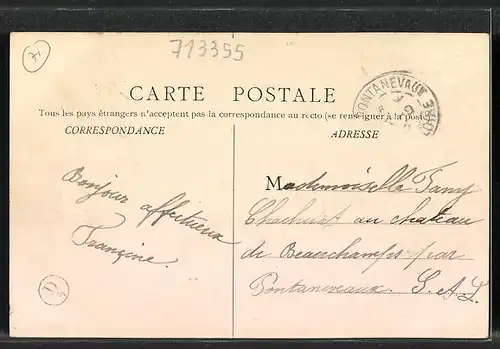 71
713355
CARTE POSTALE
Tous les pays étrangers n'acceptent pas la correspondance au recto (se renseigner à la poste)
CORRESPONDANCE
ADRESSE
PONTANEVAUX
Bonjour affectueux
Françine.
Mademoiselle Fany
au chateau
de Beauchamps par
Pontanevaux. S. & L.
D